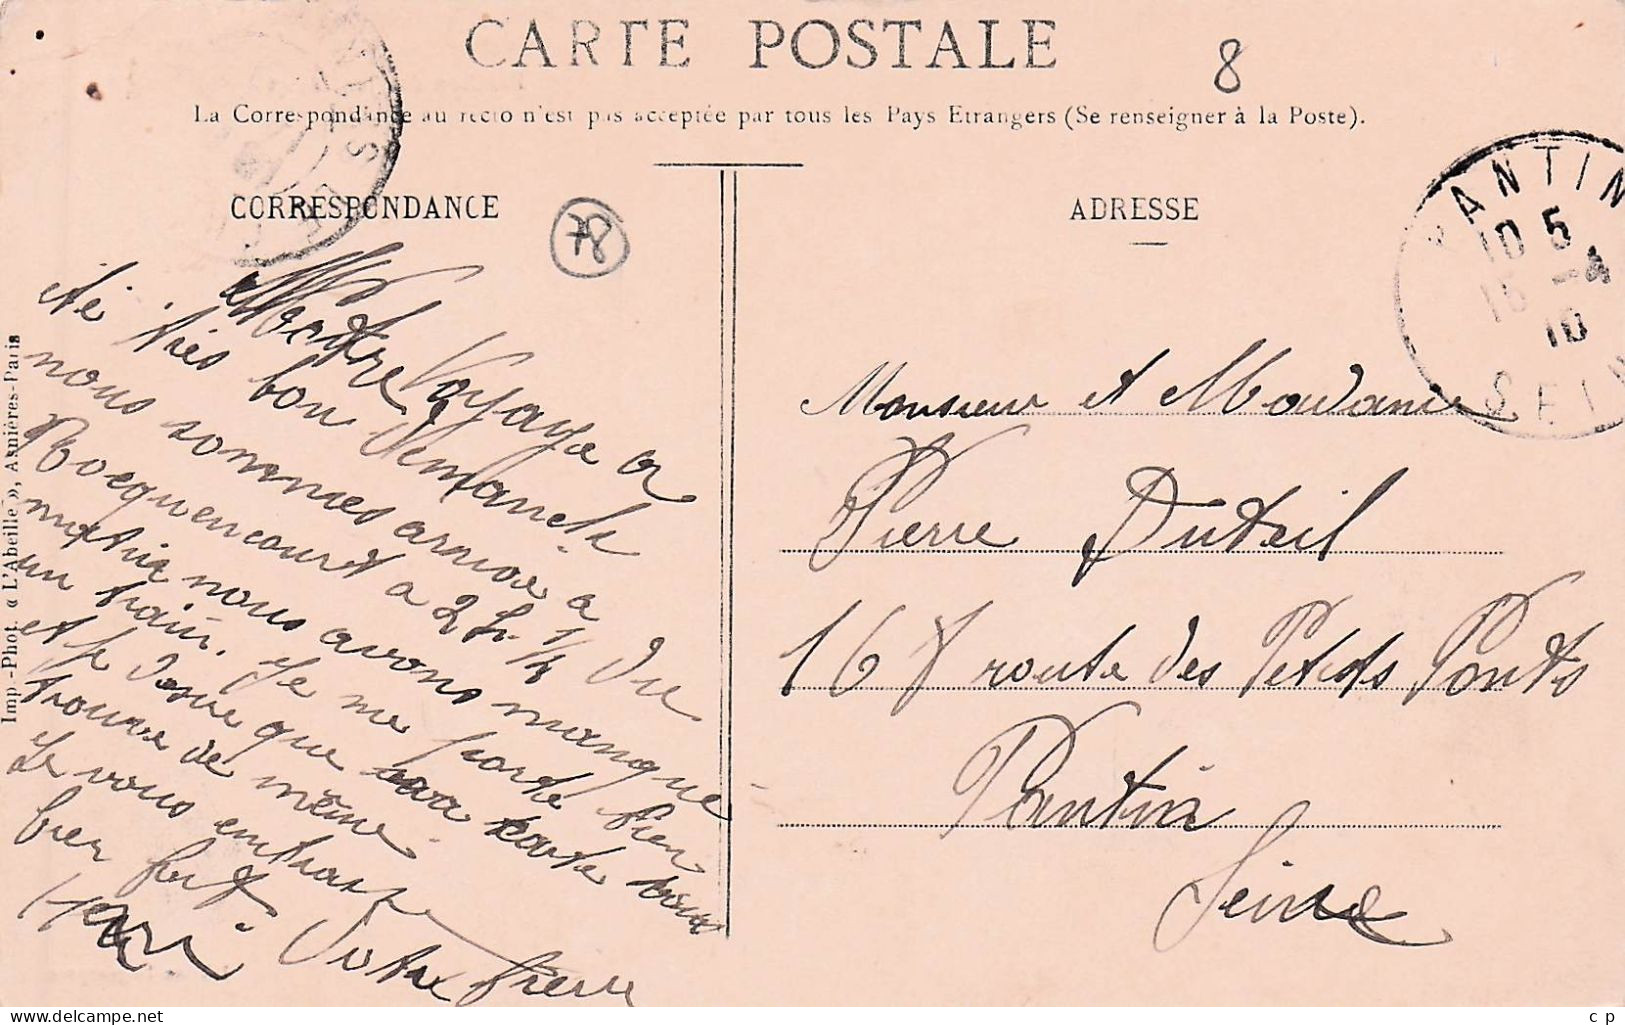 CARTE POSTALE
8
La Correspondance au recto n'est pas acceptée par tous les Pays Etrangers (Se renseigner à la Poste).
CORRESPONDANCE
78
Notre Voyage a
été très bon Dimanche
nous sommes arrivé à
Rocquencourt a 2 h 1/2 du
matin nous avons manqué
un train. Je me porte bien
et je désire que ma carte vous
trouve de même
Je vous embrasse
bien fort
Henri Votre frère
Imp.-Phot. « L'Abeille », Asnières-Paris
ADRESSE
PANTIN
10 5
15 -4
10
SEINE
Monsieur et Madame
Pierre Duteil
168 route des Petits Ponts
Pantin
Seine
c p